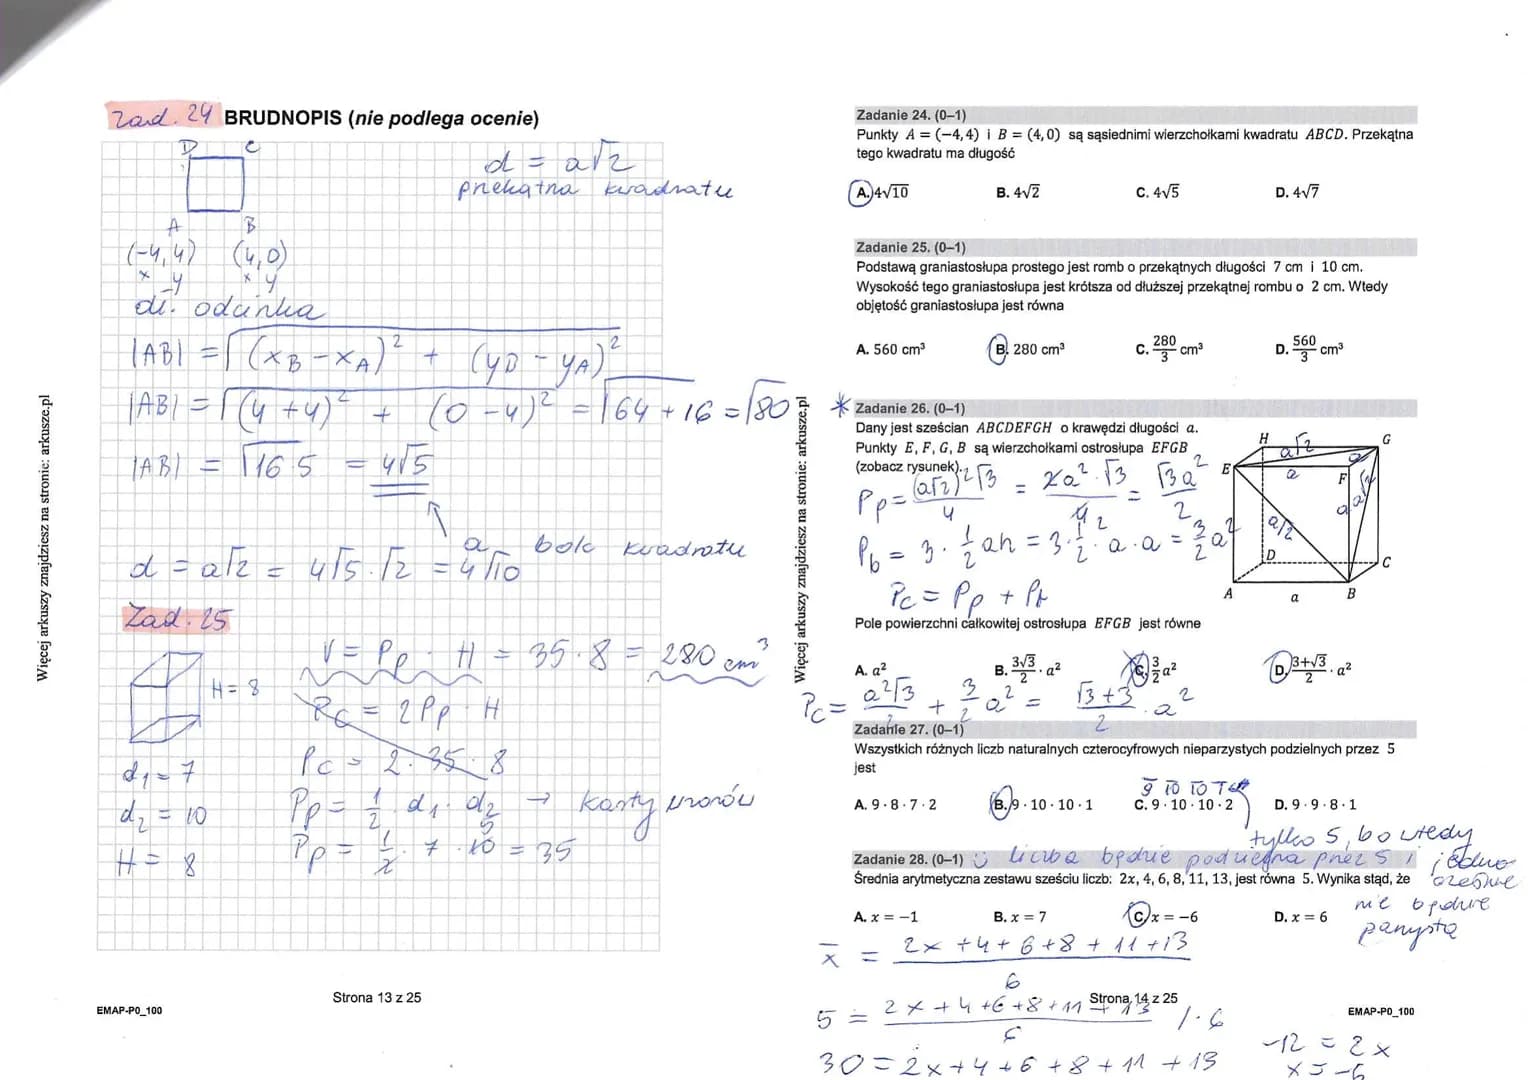 Zad. 24 BRUDNOPIS (nie podlega ocenie)
D C
d = a√2
przekątna kwadratu
A B
(-4,4) (4,0)
x y x y
dł. odcinka
|AB| = √(x_B - x_A)² + (y_B - y_A)²
|AB| = √(4+4)² + (0-4)² = √64+16 = √80
|AB| = √16·5 = 4√5
a bok kwadratu
d = a√2 = 4√5·√2 = 4√10
Zad. 25
V = Pp · H = 35·8 = 280 cm³
H = 8
Pc = 2Pp · H
Pc = 2·35·8
d₁ = 7
Pp = 1/2 · d₁ · d₂ → karty wzorów
d₂ = 10
Pp = 1/2 · 7 · 10 5 = 35
H = 8
Strona 13 z 25
EMAP-P0_100
Więcej arkuszy znajdziesz na stronie: arkusze.pl
Zadanie 24. (0–1)
Punkty A = (−4,4) i B = (4,0) są sąsiednimi wierzchołkami kwadratu ABCD. Przekątna
tego kwadratu ma długość
A. 4√10 B. 4√2 C. 4√5 D. 4√7
Zadanie 25. (0–1)
Podstawą graniastosłupa prostego jest romb o przekątnych długości 7 cm i 10 cm.
Wysokość tego graniastosłupa jest krótsza od dłuższej przekątnej rombu o 2 cm. Wtedy
objętość graniastosłupa jest równa
A. 560 cm³ B. 280 cm³ C. 280/3 cm³ D. 560/3 cm³
* Zadanie 26. (0–1)
Dany jest sześcian ABCDEFGH o krawędzi długości a.
Punkty E, F, G, B są wierzchołkami ostrosłupa EFGB
(zobacz rysunek).
Pp = (a√2)²√3/4 = 2a²·√3/4 2 = √3a²/2
Pb = 3·1/2 ah = 3·1/2·a·a = 3/2 a²
Pc = Pp + Pb
H G
a√2 a
E a F
a a√2
a√2
D C
A a B
Pole powierzchni całkowitej ostrosłupa EFGB jest równe
A. a² B. 3√3/2 · a² C. 3/2 a² D. 3+√3/2 · a²
Pc = a²√3/2 + 3/2 a² = √3+3/2 · a²
Zadanie 27. (0–1)
Wszystkich różnych liczb naturalnych czterocyfrowych nieparzystych podzielnych przez 5
jest
9 10 10 1
A. 9 · 8 · 7 · 2 B. 9 · 10 · 10 · 1 C. 9 · 10 · 10 · 2 D. 9 · 9 · 8 · 1
tylko 5, bo wtedy
Zadanie 28. (0–1) liczba będzie podzielna przez 5 i jedno
Średnia arytmetyczna zestawu sześciu liczb: 2x, 4, 6, 8, 11, 13, jest równa 5. Wynika stąd, że
cześnie
nie będzie
parzysta
A. x = −1 B. x = 7 C. x = −6 D. x = 6
x̄ = 2x +4+6+8+11+13/6
5 = 2x+4+6+8+11+13/6 /·6
30 = 2x+4+6+8+11+13
-12 = 2x
x = -6
Strona 14 z 25
EMAP-P0_100
Więcej arkuszy znajdziesz na stronie: arkusze.pl